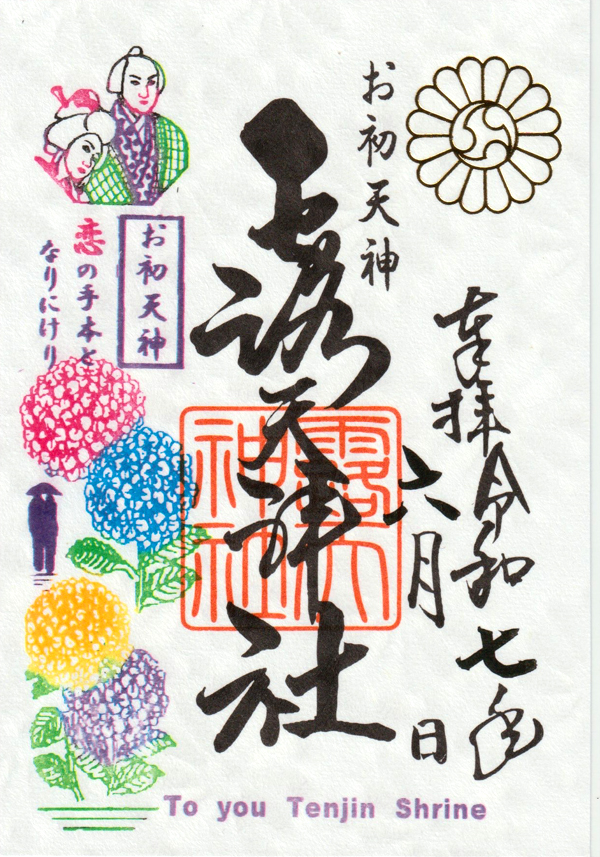 奉拝 令和七年
六月 日
お初天神
露天神社
露天
神社
お初天神
恋の手本と
なりにけり
To you Tenjin Shrine